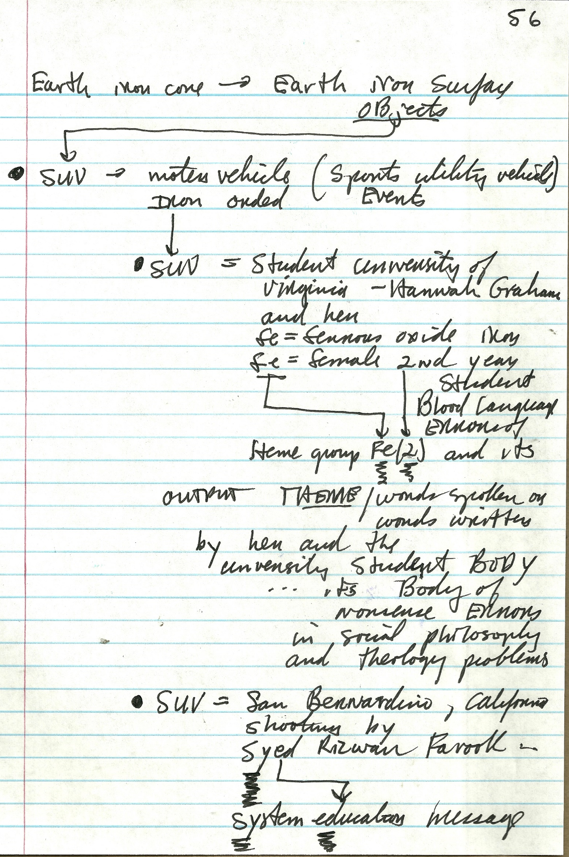 56
Earth iron core → Earth iron surface
OBjects
• SUV → motor vehicle (Sports utility vehicle)
Iron orded Events
• SUV = Student university of
virginia - Hannah Graham
and her
fe = ferrous oxide iron
fe = female 2nd year
Student
Blood Language
Errors of
Heme group Fe(2) and its
OUTPUT THEME / words spoken or
words written
by her and the
university Student BODY
... its Body of
nonsense Errors
in social philosophy
and theology problems
• SUV = San Bernardino, California
shooting by
Syed Rizwan Farook -
system education message